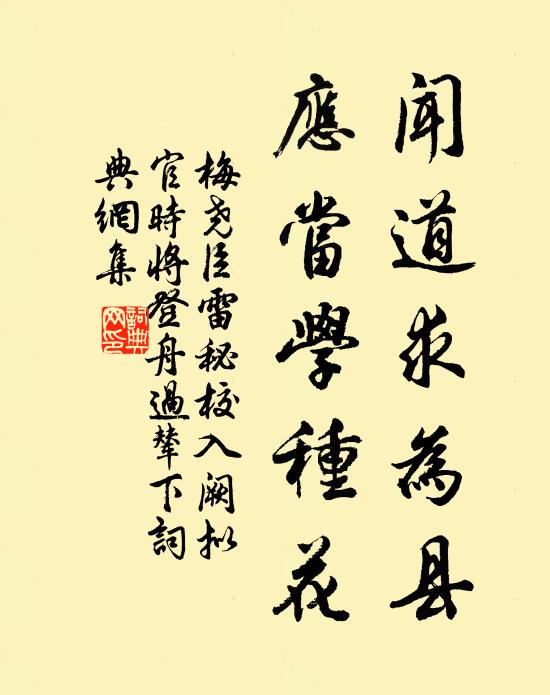 闻道求為县
應當學種花
梅尧臣雷秘校入阙拟
官時將登舟過輦下詞
典網集
詞典網印